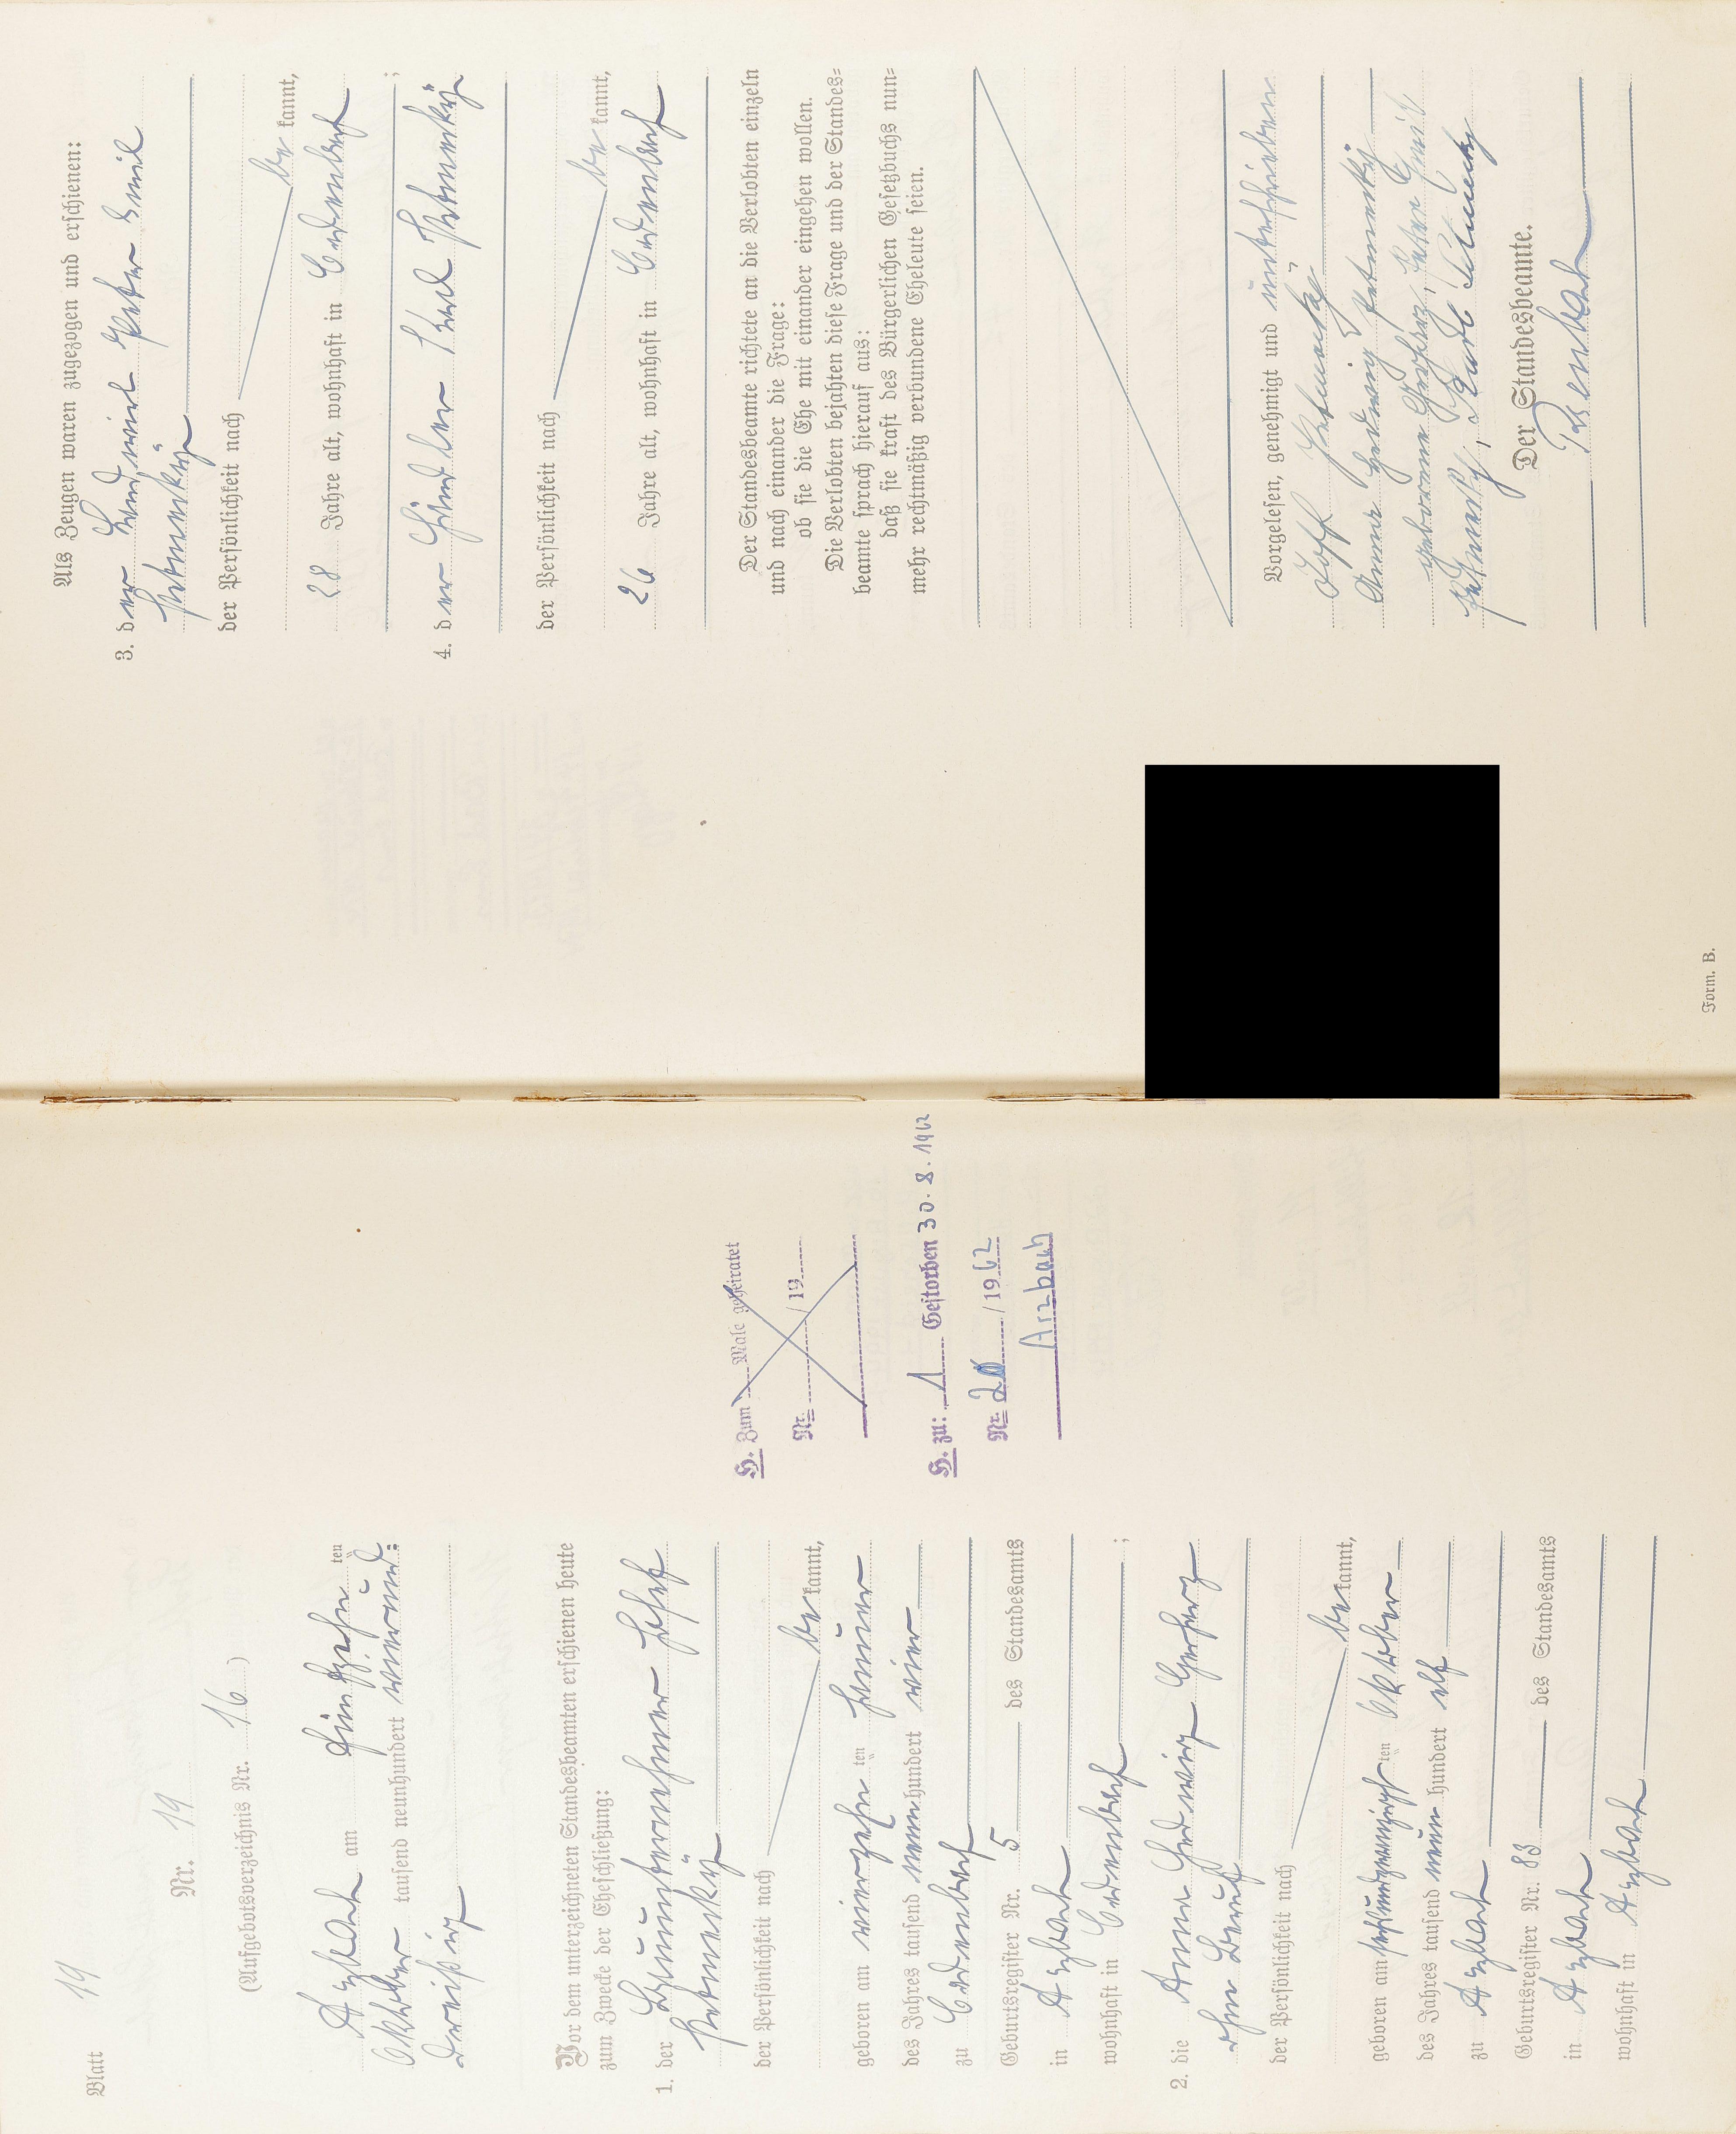 Blatt 19
Nr. 19
(Aufgebotsverzeichnis Nr. 16)
Arzbach am fünfzehn ten
Oktober tausend neunhundert vierund:
dreißig
Vor dem unterzeichneten Standesbeamten erschienen heute
zum Zwecke der Eheschließung:
1. der Bauunternehmer Josef
der Persönlichkeit nach
bekannt,
geboren am vierzehn ten Januar
des Jahres tausend neunhundert vier
zu Cadenbach
Geburtsregister Nr. 5 des Standesamts
in Arzbach
wohnhaft in Cadenbach ;
2. die Anna Hedwig Gerharz
ohne Beruf
der Persönlichkeit nach
bekannt,
geboren am sechsundzwanzigsten Oktober
des Jahres tausend neun hundert elf
zu Arzbach
Geburtsregister Nr. 83 des Standesamts
in Arzbach
wohnhaft in Arzbach
H. Zum Male geheiratet
Nr. / 19
H. zu: 1 Gestorben 30.8.1962
Nr. / 1962
Arzbach
Als Zeugen waren zugezogen und erschienen:
3. der Landwirt Peter Emil
der Persönlichkeit nach
bekannt,
28 Jahre alt, wohnhaft in Cadenbach
;
4. der Händler Karl
der Persönlichkeit nach
bekannt,
26 Jahre alt, wohnhaft in Cadenbach
Der Standesbeamte richtete an die Verlobten einzeln
und nach einander die Frage:
ob sie die Ehe mit einander eingehen wollen.
Die Verlobten bejahten diese Frage und der Standes=
beamte sprach hierauf aus:
daß sie kraft des Bürgerlichen Gesetzbuchs nun=
mehr rechtmäßig verbundene Eheleute seien.
Vorgelesen, genehmigt und unterschrieben
Josef
Anna Hedwig
geborene Gerharz, Peter Emil
Karl
Der Standesbeamte.
Form. B.